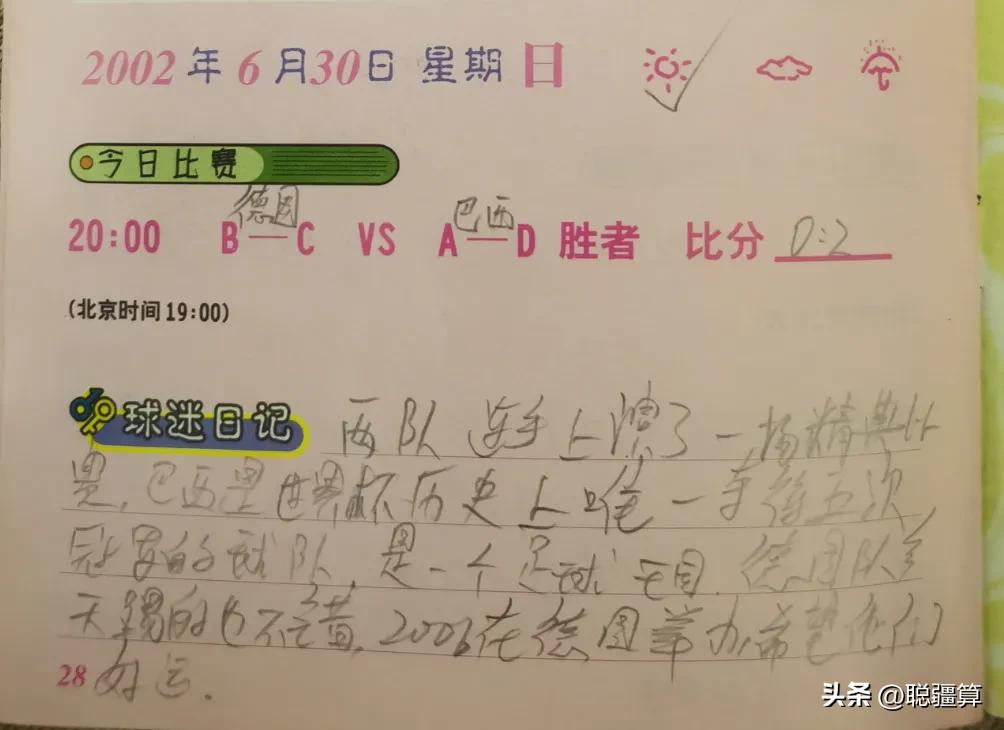 2002年6月30日 星期日
今日比赛
德国 巴西
20:00 B—C VS A—D 胜者 比分 0:2
(北京时间19:00)
球迷日记 两队连手上演了一场精典比
赛,巴西是世界杯历史上唯一夺得五次
冠军的球队,是一个足球王国.德国队今
天踢的也不错,2006在德国举办,希望他们
28 好运.
头条 @聪疆算